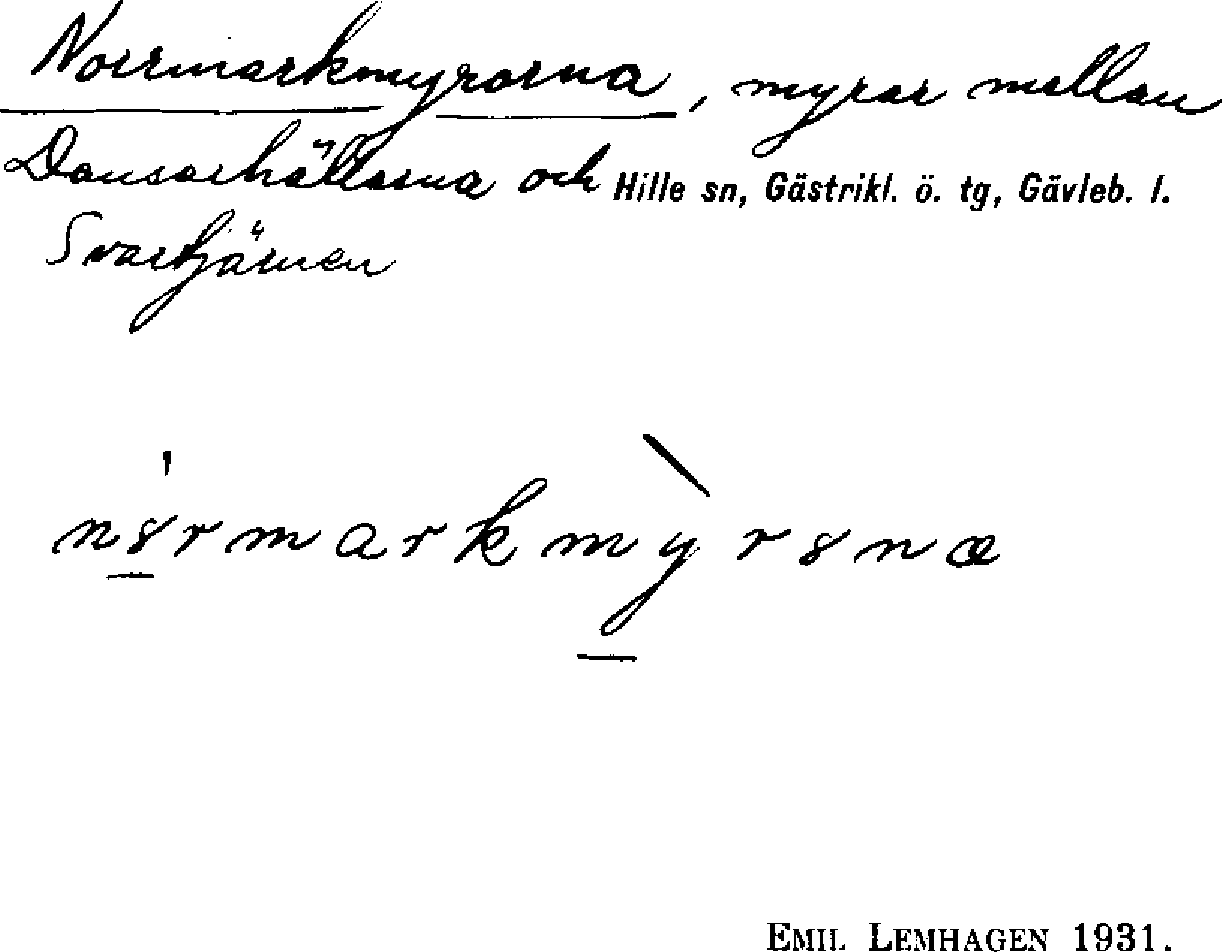 Norrmarkmyrorna, myrar mellan
Dansarhällarna och Hille sn, Gästrikl. ö. tg, Gävleb. l.
Svartjärnen
n8rmarkmỳr8næ
EMIL LEMHAGEN 1931.